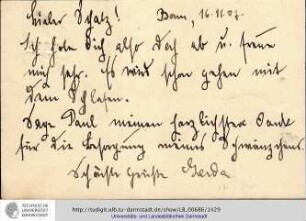 Lieber Schatz! Bonn, 16.11.07.
Ich hole Dich also doch ab u. freue
mich sehr. Es wird schon gehen mit
dem Schlafen.
Sage Paul meinen herzlichsten Dank
für die Besorgung meines
Schönste Grüße Gerda
TECHNISCHE
UNIVERSITÄT
DARMSTADT
http://tudigit.ulb.tu-darmstadt.de/show/LB_00686/1429
Universitäts- und Landesbibliothek Darmstadt